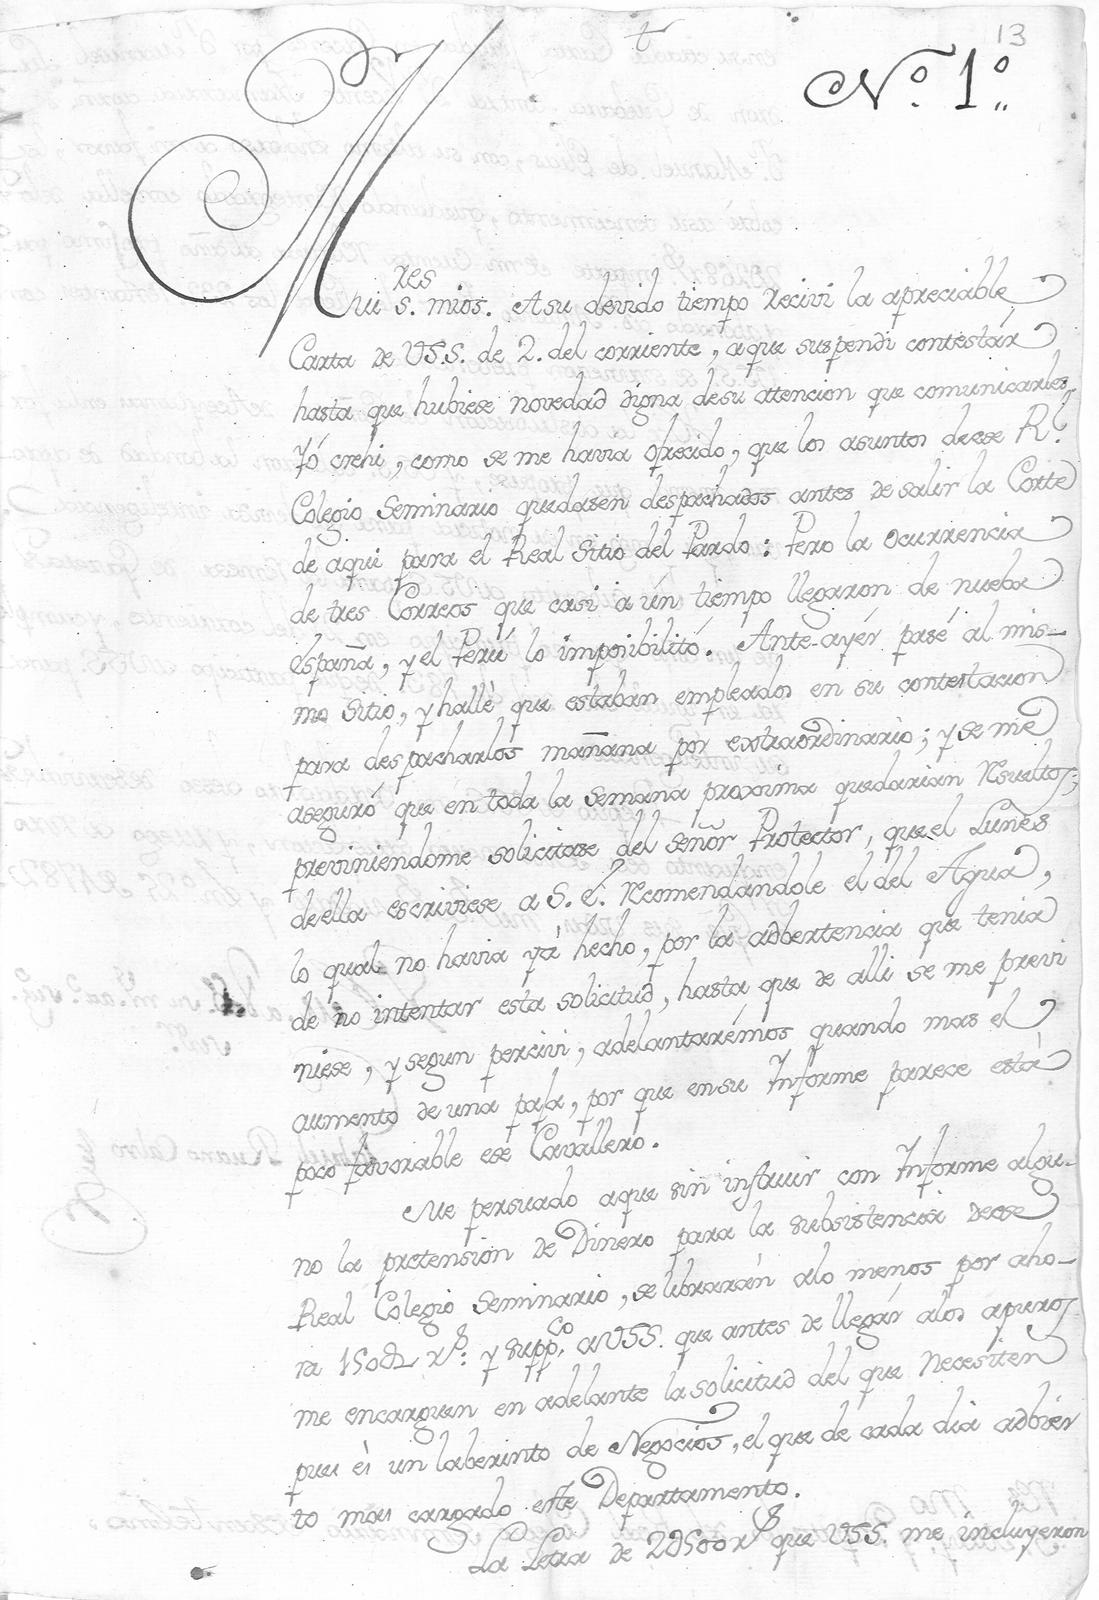 13
N.º 1.º
Mui s.res mios. Asu devido tiempo recivi la apreciable
Carta de VSS. de 2. del corriente, aque suspendi contestár
hasta que hubiese novedad digna desu atencion que comunicarles.
Yó crehi, como se me havia ofrecido, que los asuntos deese R.l
Colegio Seminario quedasen despachados antes de salir la Corte
de aqui para el Real Sitio del Pardo: Pero la ocurrencia
de tres Correos que casi a ún tiempo llegaron de nueba
españa, y el Perú lo imposibilitó. Ante-ayér pasé al mis-
mo Sitio, y hallè que estaban empleados en su contestacion
para despacharlos mañana por extraordinario; y se me
aseguró que en toda la semana proxima quedarian resueltos;
previniéndome solicitase del señor Protector, que el Lunes
de ella escriviese a S. E. recomendàndole el del Agua,
lo qual no havia yà hecho, por la adbertencia que tenia
de no intentar esta solicitud, hasta que de alli se me previ
niese, y segun percivi, adelantarémos quando mas el
aumento de una paja, por que en su Informe parece està
poco favorable ese Cavallero.
Me persuado aque sin instruir con Informe algu-
no la pretension de Dinero para la subsistencia deese
Real Colegio Seminario, se librarán alo menos por aho-
ra 150 r.s: y supp.co a VSS. que antes de llegár alos apuros,
me encarguen en adelante la solicitud del que necesiten
pues és un laberinto de Negocios, el que de cada dia adbier
to mas cargado este Departamento.
La Letra de 2500 r.s que VSS. me incluyeron